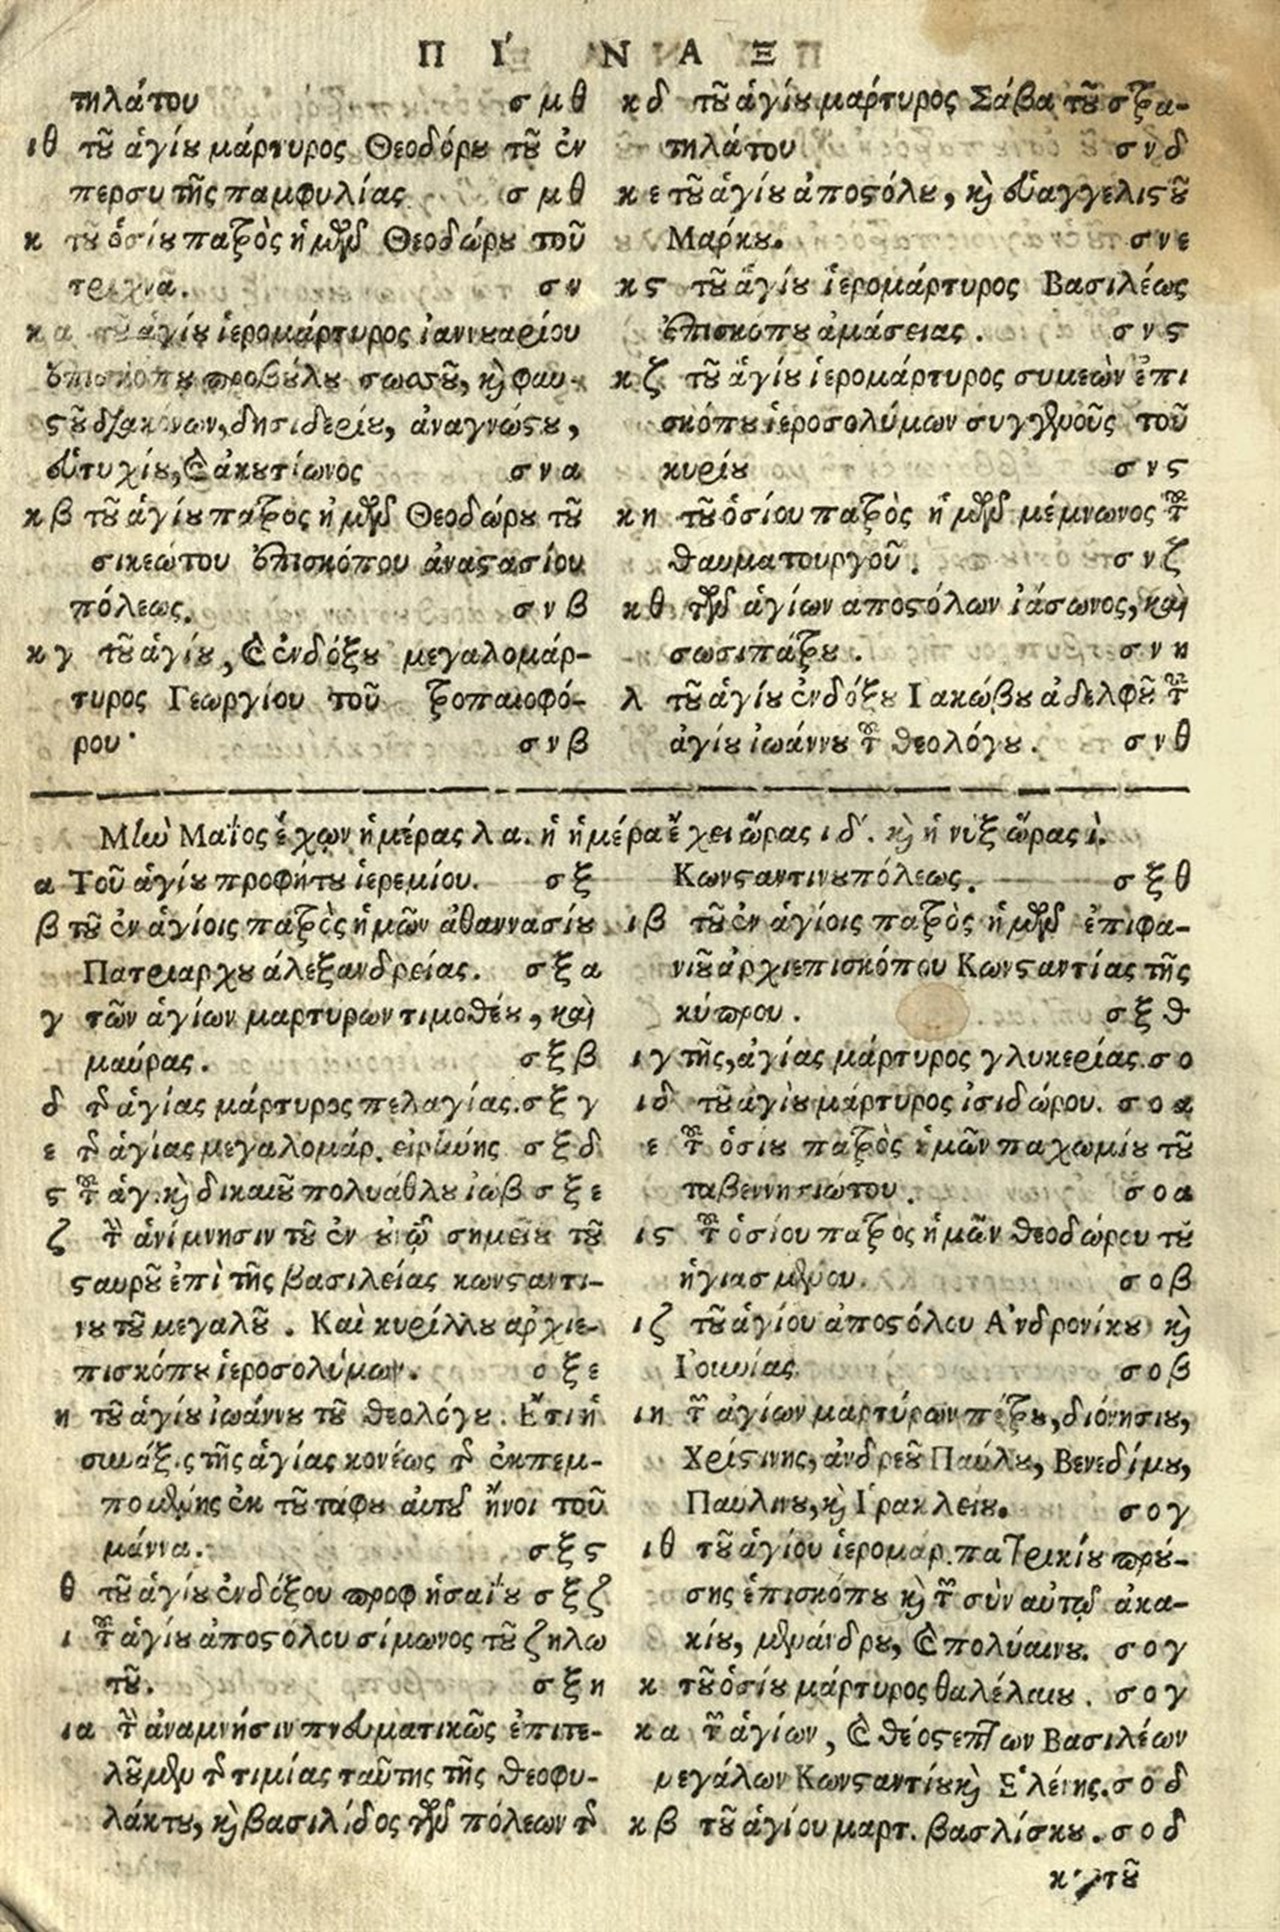 ΠΙΝΑΞ
τηλάτου σμθ
ιθ τȣ̃ ἁγίȣ μάρτυρος Θεοδόρȣ τȣ̃ ἐν
περσυ τῆς παμφυλίας σμθ
κ τȣ̃ ὁσίȣ πατρὸς ἡμῶν Θεοδώρȣ τοῦ
τριχινᾶ. σν
κα τȣ̃ ἁγίȣ ἱερομάρτυρος ἰαννȣαρίου
ἐπισκόπȣ προβύλȣ σωσσȣ̃, κὶ φαυ-
ςȣ̃ διακόνων, δησιδερίȣ, ἀναγνώςȣ,
ἐυτυχίȣ, & ἀκυτίωνος σνα
κβ τȣ̃ ἁγίȣ πατρος ἡμῶν Θεοδώρȣ τȣ̃
σικεώτου ἐπισκόπου ἀναςασίου
πόλεως. σνβ
κγ τȣ̃ ἁγίȣ, & ἐνδόξȣ μεγαλομάρ-
τυρος Γεωργίου τοῦ τροπαιοφό-
ρου· σνβ
κδ τȣ̃ ἁγίȣ μάρτυρος Σάβα τȣ̃ στρα-
τηλάτου σνδ
κε τȣ̃ ἁγίȣ ἀποςόλȣ, κὶ ἐυαγγελιςȣ̃
Μαρκȣ. σνε
κς τȣ̃ ἁγίȣ ἱερομάρτυρος Βασιλέως
ἐπισκόπȣ ἀμάσειας. σνς
κζ τȣ̃ ἁγίȣ ἱερομάρτυρος συμεὼν ἐπι
σκόπȣ ἱεροσολύμων συγγενοῦς τοῦ
κυρίȣ σνς
κη τȣ̃ ὁσίου πατρὸς ἡμῶν μέμνωνος τοῦ
θαυματουργοῦ. σνζ
κθ τῶν ἁγίων αποςόλων ἰάσωνος, καὶ
σωσιπάτρȣ. σνη
λ τȣ̃ ἁγίȣ ἐνδόξȣ Ιακώβȣ ἀδελφȣ̃ τοῦ
ἁγίȣ ἰωάννȣ τοῦ θεολόγȣ. σνθ
Μὴν Μαΐος ἔχων ἡμέρας λα. ἡ ἡμέρα ἔχει ὥρας ιδ΄. κὶ ἡ νὺξ ὥρας ι.
α Τοῦ ἁγίȣ προφήτȣ ἱερεμίου. σξ
β τȣ̃ ἐν ἁγίοις πατρὸς ἡμῶν ἀθαννασίȣ
Πατριαρχȣ ἀλεξανδρείας. σξα
γ τῶν ἁγίων μαρτυρων τιμοθέȣ, καὶ
μαύρας. σξβ
δ τῆς ἁγίας μάρτυρος πελαγίας. σξγ
ε τῆς ἁγίας μεγαλομάρ. εἰρήνης σξδ
ς τοῦ ἁγ. κὶ δικαιȣ̃ πολυάθλȣ ἰὼβ σξε
ζ τὴν ἀνίμνησιν τȣ̃ ἐν ȣ̓νῷ σημείȣ τȣ̃
ςαυρȣ̃ ἐπὶ τῆς βασιλείας κωνςαντι-
νȣ τȣ̃ μεγαλȣ̃. Καὶ κυρίλλȣ αρχιε-
πισκόπȣ ἱεροσολύμων. σξε
η τȣ̃ ἁγίȣ ἰωάννȣ τȣ̃ θεολόγȣ. Ἔτι ἡ
συνάξις τῆς ἁγίας κονέως τῆς ἐκπεμ-
πομένης ἐκ τȣ̃ τάφȣ ἀυτȣ̃ ἤνοι τοῦ
μάννα. σξς
θ τȣ̃ ἁγίȣ ἐνδόξου προφ ἡσαΐȣ σξζ
ι τοῦ ἁγίȣ ἀποςόλου σίμωνος τȣ̃ ζηλω
τȣ̃. σξη
ια τὴν ἀναμνήσιν πνευματικῶς ἐπιτε-
λȣ̃μεν τῆς τιμίας ταῦτης τῆς θεοφυ-
λάκτȣ, κὶ βασιλίδος τῶν πόλεων τῆς
Κωνςαντινȣπόλεως. σξθ
ιβ τȣ̃ ἐν ἁγίοις πατρὸς ἡμῶν ἐπιφα-
νίȣ ἀρχιεπισκόπου Κωνςαντίας τῆς
κύπρου. σξθ
ιγ τῆς, ἁγίας μάρτυρος γλυκερίας. σο
ιδ τȣ̃ ἁγὶȣ μάρτυρος ἰσιδώρου. σοα
ε τοῦ ὁσίȣ πατρὸς ἡμῶν παχωμίȣ τȣ̃
ταβεννησιώτου. σοα
ις τοῦ ὁσίου πατρος ἡμῶν θεοδώρου τȣ̃
ἡγιασμένου. σοβ
ιζ τȣ̃ ἁγίου ἀποςόλου Ἀνδρονίκȣ κὶ
Ἰουνίας. σοβ
ιη τῶν ἁγίων μαρτύρων πέτρȣ, διόνησιȣ,
Χρίςινης, ἀνδρεȣ̃ Παύλȣ, Βενεδίμȣ,
Παυλινȣ, κὶ Ἡρακλείȣ. σογ
ιθ τȣ̃ ἁγίου ἱερομαρ. πατρικίȣ πρύ-
σης ἐπισκόπȣ κὶ τῶν σὺν αὐτῷ ἀκα-
κίȣ, μενάνδρȣ, & πολύαινȣ. σογ
κ τȣ̃ ὁσίȣ μάρτυρος θαλέλαιȣ. σογ
κα τῶν ἁγίων, & θέοςεπτων Βασιλέων
μεγάλων Κωνςαντίȣ κὶ Ἑλένης. σοδ
κβ τȣ̃ ἁγίου μαρτ. βασλίσκȣ. σοδ
τȣ̃